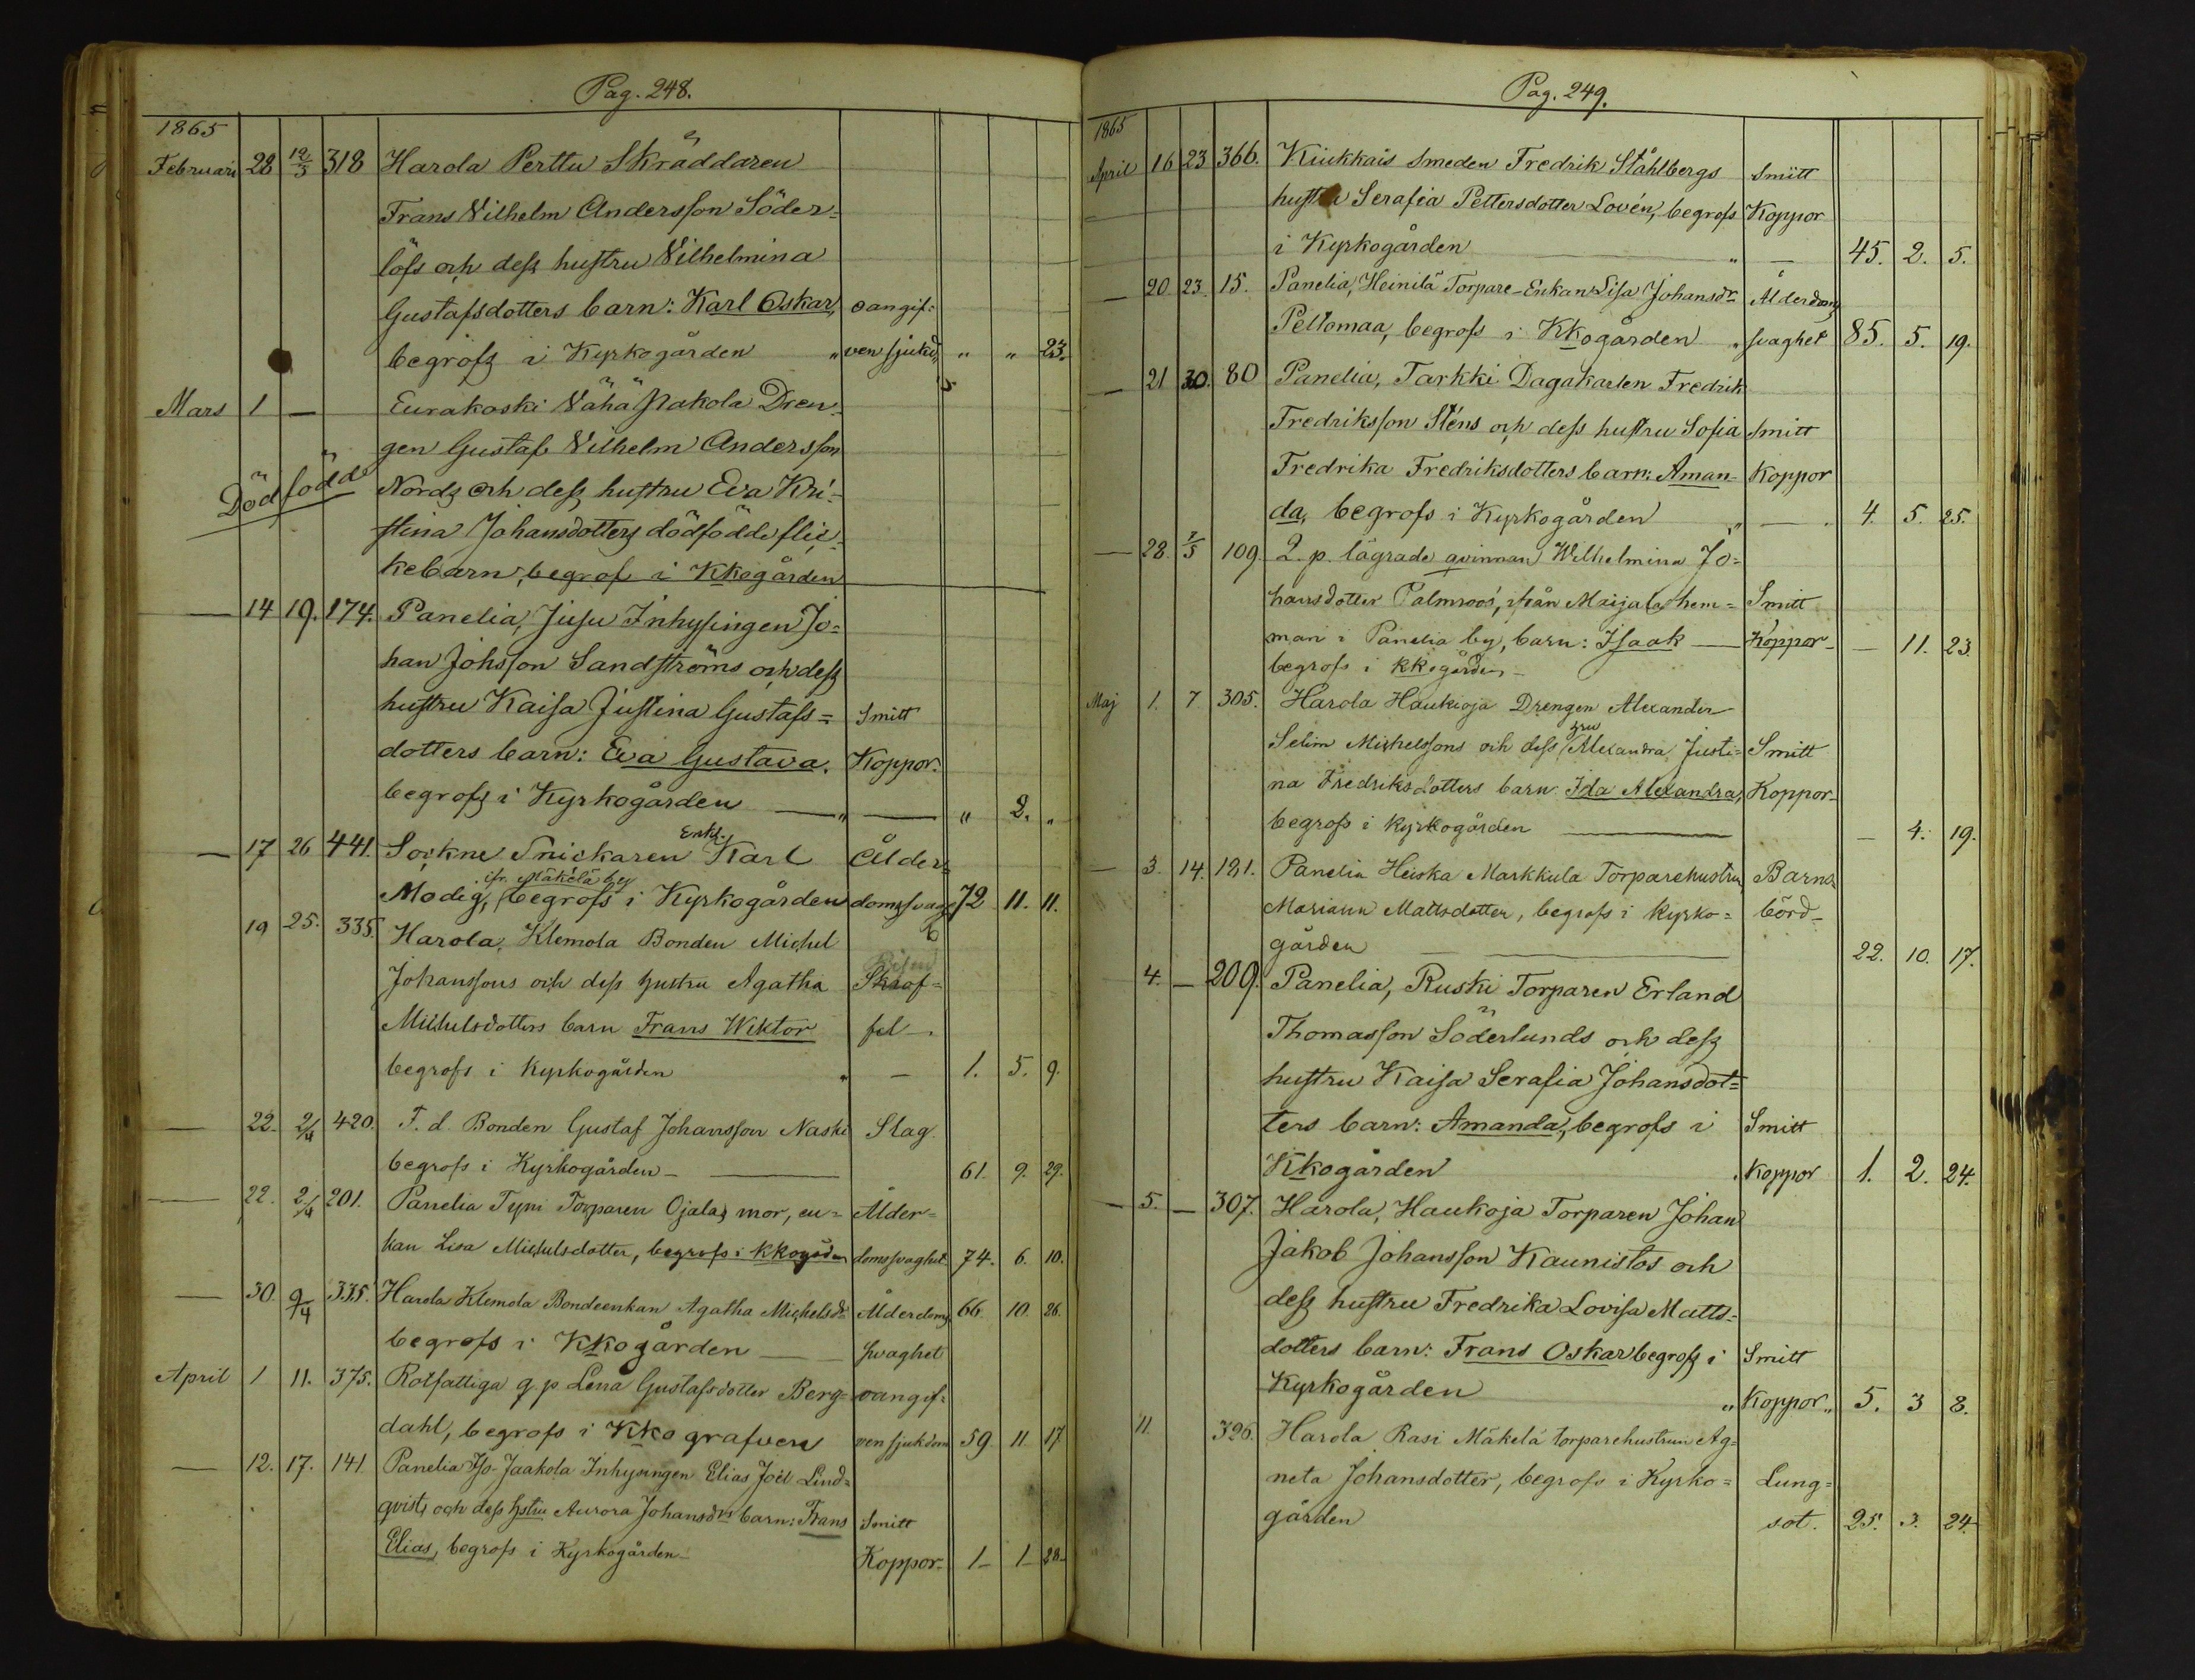 Pag. 248.
1865
Februari 28 12/3 318 Harola Perttu Skräddaren
Frans Vilhelm Andersson Söder-
löfs och dess hustru Vilhelmina
Gustafsdotters barn: Karl Oskar, oangif-
begrofs i Kyrkogården " ven sjukd. " " 23.
Mars 1 — Eurakoski Vähä Jaakola Dren-
gen Gustaf Vilhelm Andersson
Dödfödd Nords och dess hustru Eva Kri-
stina Johansdotters dödfödde flic-
kebarn, begrof i Kkogården
— 14 19. 174. Panelia, Jusu Inhysingen Jo=
han Johsson Sandströms och dess
hustru Kaisa Justina Gustafs= Smitt
dotters barn: Eva Gustava. Koppor.
begrofs i Kyrkogården — " — " 2. "
— 17 26 441. Sockne Snickaren Enkl. Karl Ålder=
Modig, ifr. Mäkelä by begrofs i Kyrkogården domssvagh 72 11. 11.
19 25. 335. Harola, Klemola Bonden Michel
Johanssons och dess hustru Agatha Skrof=
Michelsdotters barn Frans Wiktor fel —.
begrofs i Kyrkogården " — 1. 5. 9.
— 22. 2/4 420. F. d. Bonden Gustaf Johansson Naski Slag.
begrofs i Kyrkogården — 61. 9. 29.
— 22. 2/4 201. Panelia Tyni Torparen Ojalas mor, en= Ålder=
kan Lisa Michelsdotter, begrofs i Kkogården domssvaghet 74. 6. 10.
— 30. 9/4 335. Harola Klemola Bondeenkan Agatha Michelsdr Ålderdoms 66. 10. 26.
begrofs i Kkogården — svaghet
April 1 11. 375. Rotfattiga q. p Lena Gustafsdotter Berg= oangif=
dahl, begrofs i Kko grafven ven sjukdom 59 11 17
— 12. 17. 141 Panelia Iso-Jaakola Inhysingen Elias Joël Lind=
qvists och dess hstru Aurora Johansdrs barn: Frans Smitt
Elias, begrofs i Kyrkogården — Koppor — 1 — 1 28 —
Pag. 249.
1865
April 16 23 366. Kiukkais Smeden Fredrik Ståhlbergs Smitt
hustru Serafia Pettersdotter Lovén, begrofs Koppor
i Kyrkogården " — 45. 2. 5.
— 20. 23. 15. Panelia, Heinilä Torpare-Enkan Lisa Johansdr Ålderdoms
Peltomaa, begrofs i Kkogården " svaghet 85. 5. 19.
— 21 30. 80 Panelia, Tarkki Dagakarlen Fredrik
Fredriksson Sténs och dess hustru Sofia Smitt
Fredrika Fredriksdotters barn: Aman- Koppor
da, begrofs i Kyrkogården " — . 4. 5. 25.
— 28. 7/5 109. Q. p. lägrade qvinnan Wilhelmina Jo=
hansdotter Palmroos, ifrån Maijala hem= Smitt
man i Panelia by, barn: Isaak — Koppor — 11. 23.
begrofs i kkogården —
Maj 1. 7 305. Harola Haukioja Drengen Alexander
Selim Michelssons och dess hru Alexandra Justi= Smitt
na Fredriksdotters barn Ida Alexandra, Koppor —
begrofs i Kyrkogården — 4. 19.
— 3. 14. 121. Panelia Heiska Markkula Torparehustru Barns=
Mariana Mattsdotter, begrofs i Kyrko= börd —
gården — 22. 10. 17.
4. — 209. Panelia, Ruski Torparen Erland
Thomasson Söderlunds och dess
hustru Kaisa Serafia Johansdot=
ters barn: Amanda, begrofs i Smitt
Kkogården . Koppor 1. 2. 24.
— 5. — 307. Harola, Haukoja Torparen Johan
Jakob Johansson Kaunistos och
dess hustru Fredrika Lovisa Matts-
dotters barn: Frans Oskar begrofs i Smitt
Kyrkogården " Koppor " 5. 3 8.
11 326. Harola Rasi Mäkelä torparehustrun Ag=
neta Johansdotter, begrofs i Kyrko= Lung=
gården sot. 25. 3. 24.